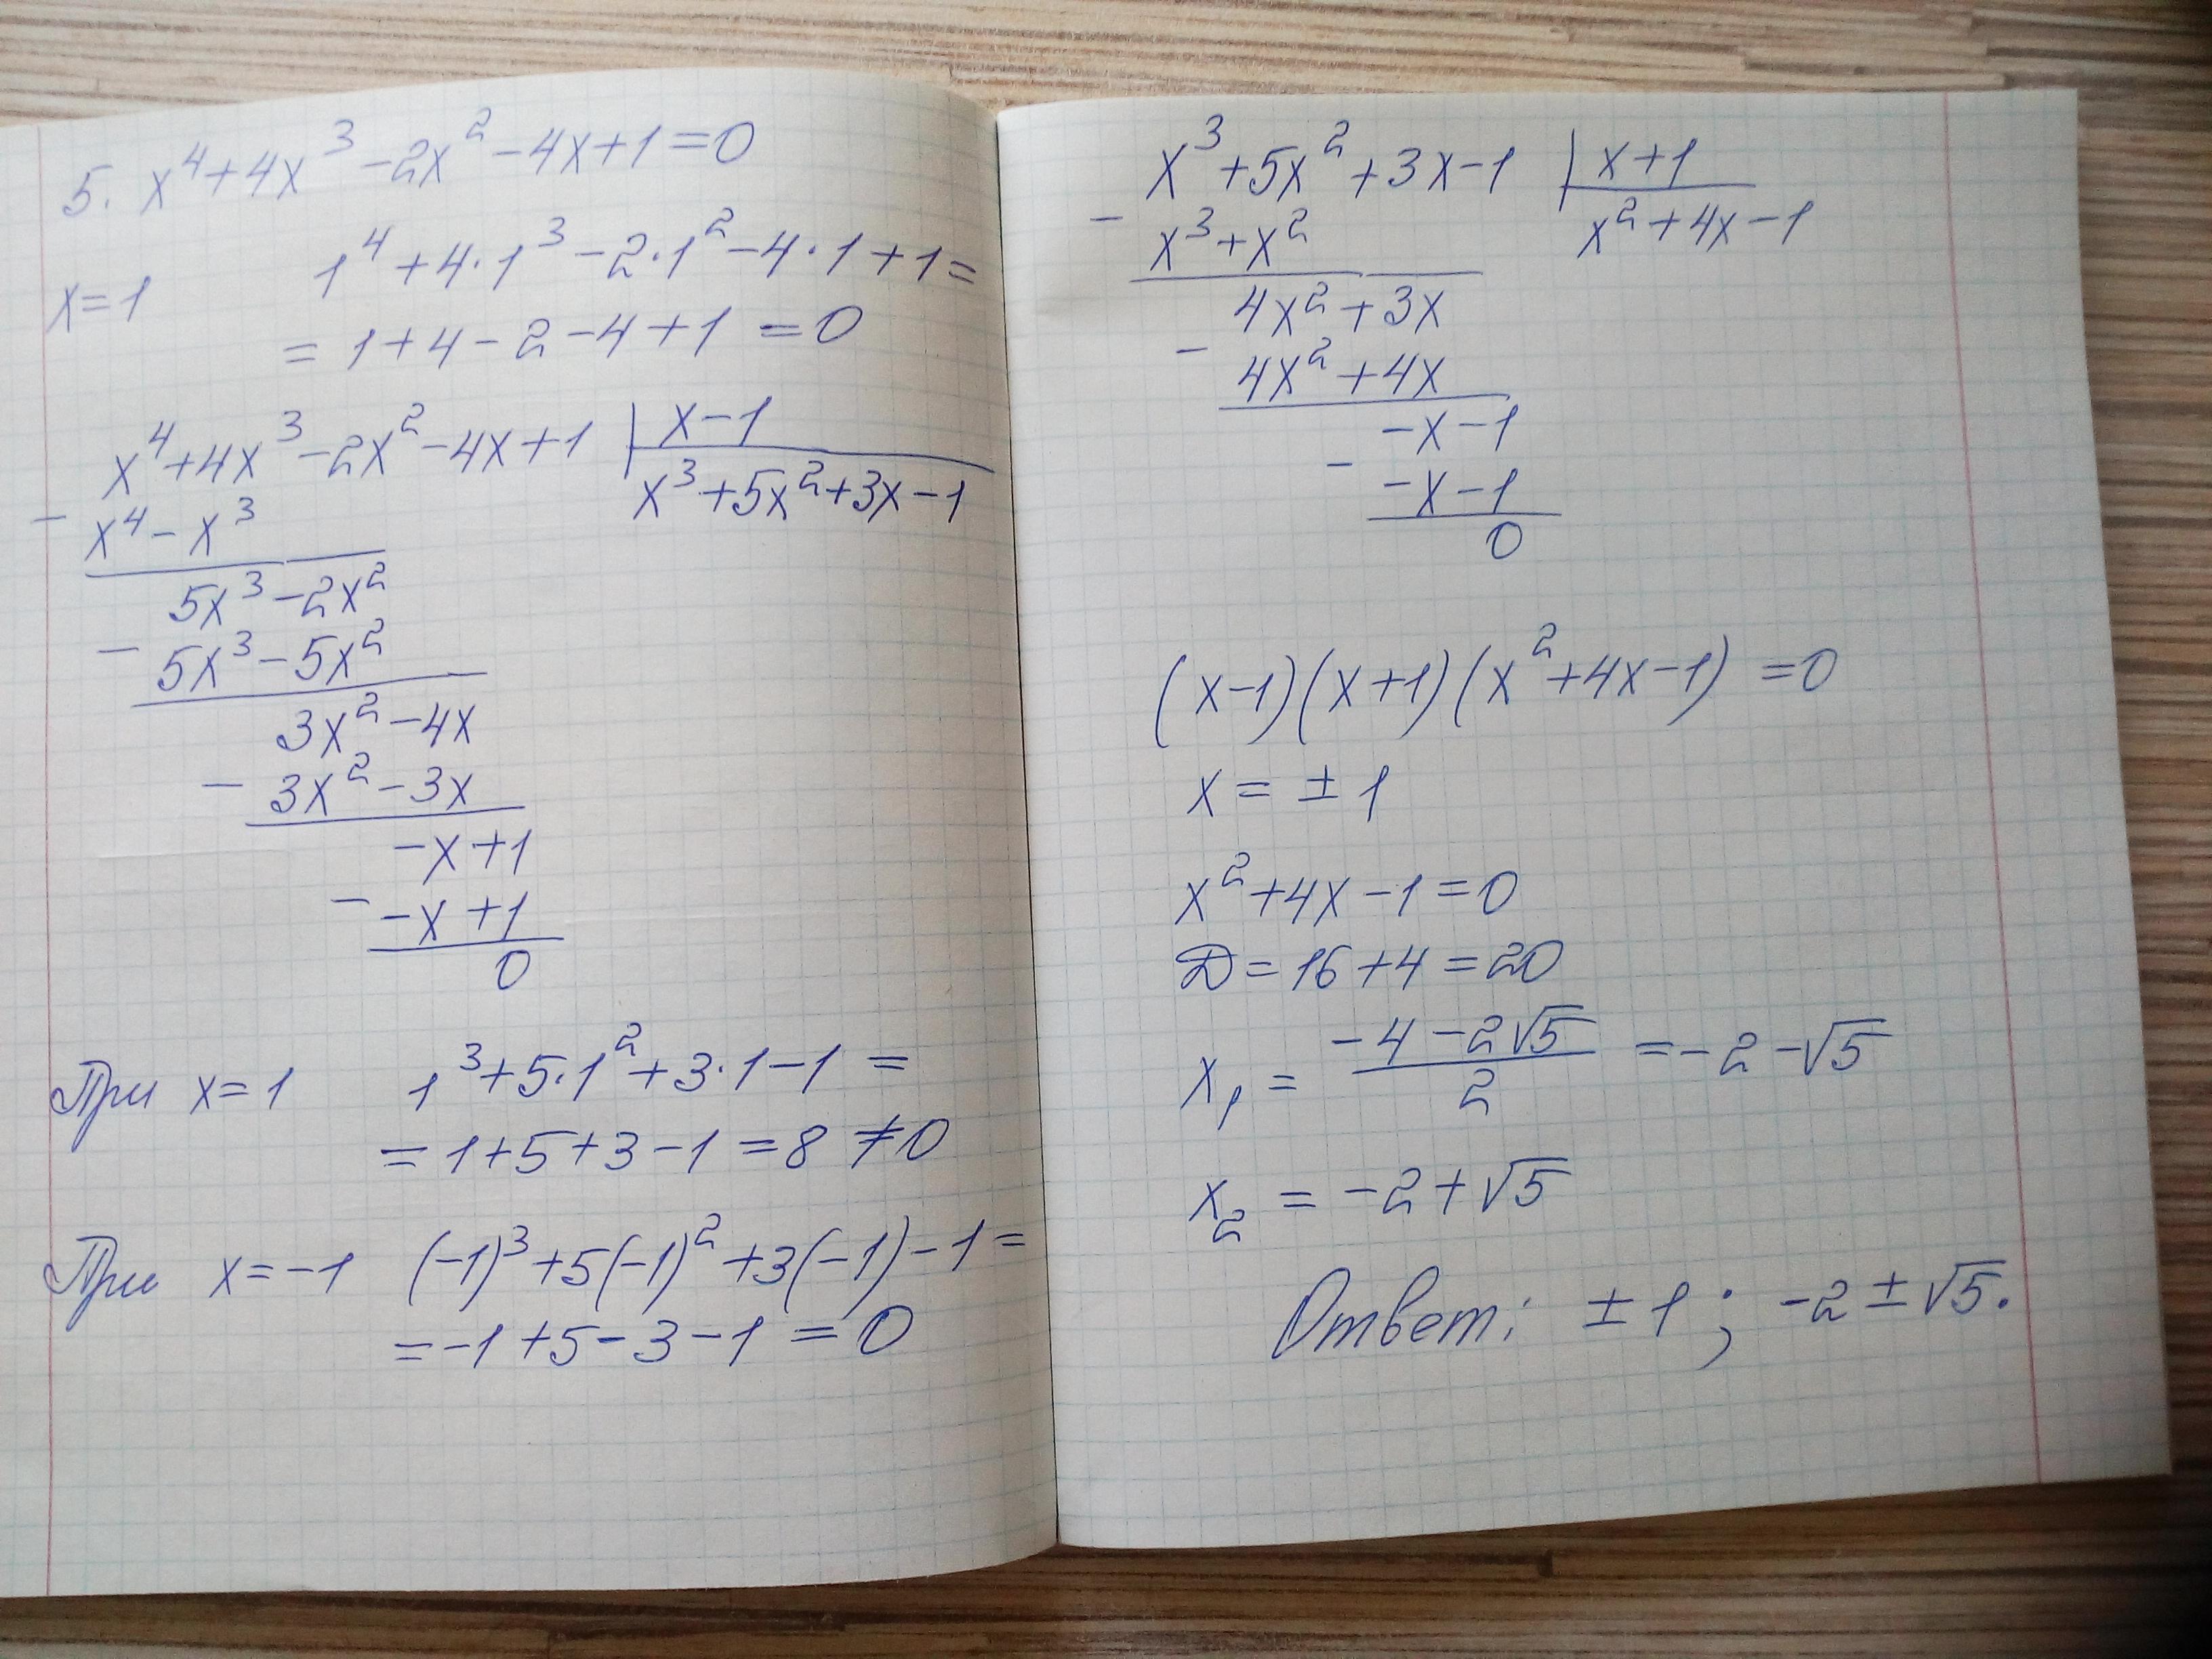 5. x⁴+4x³-2x²-4x+1=0
x=1 1⁴+4·1³-2·1²-4·1+1=
=1+4-2-4+1=0
x⁴+4x³-2x²-4x+1 | x-1
- x⁴-x³ x³+5x²+3x-1
5x³-2x²
- 5x³-5x²
3x²-4x
- 3x²-3x
-x+1
- -x+1
0
При x=1 1³+5·1²+3·1-1=
=1+5+3-1=8≠0
При x=-1 (-1)³+5(-1)²+3(-1)-1=
=-1+5-3-1=0
x³+5x²+3x-1 | x+1
- x³+x² x²+4x-1
4x²+3x
- 4x²+4x
-x-1
- -x-1
0
(x-1)(x+1)(x²+4x-1)=0
x=±1
x²+4x-1=0
D=16+4=20
x₁=(-4-2√5)/2=-2-√5
x₂=-2+√5
Ответ: ±1; -2±√5.